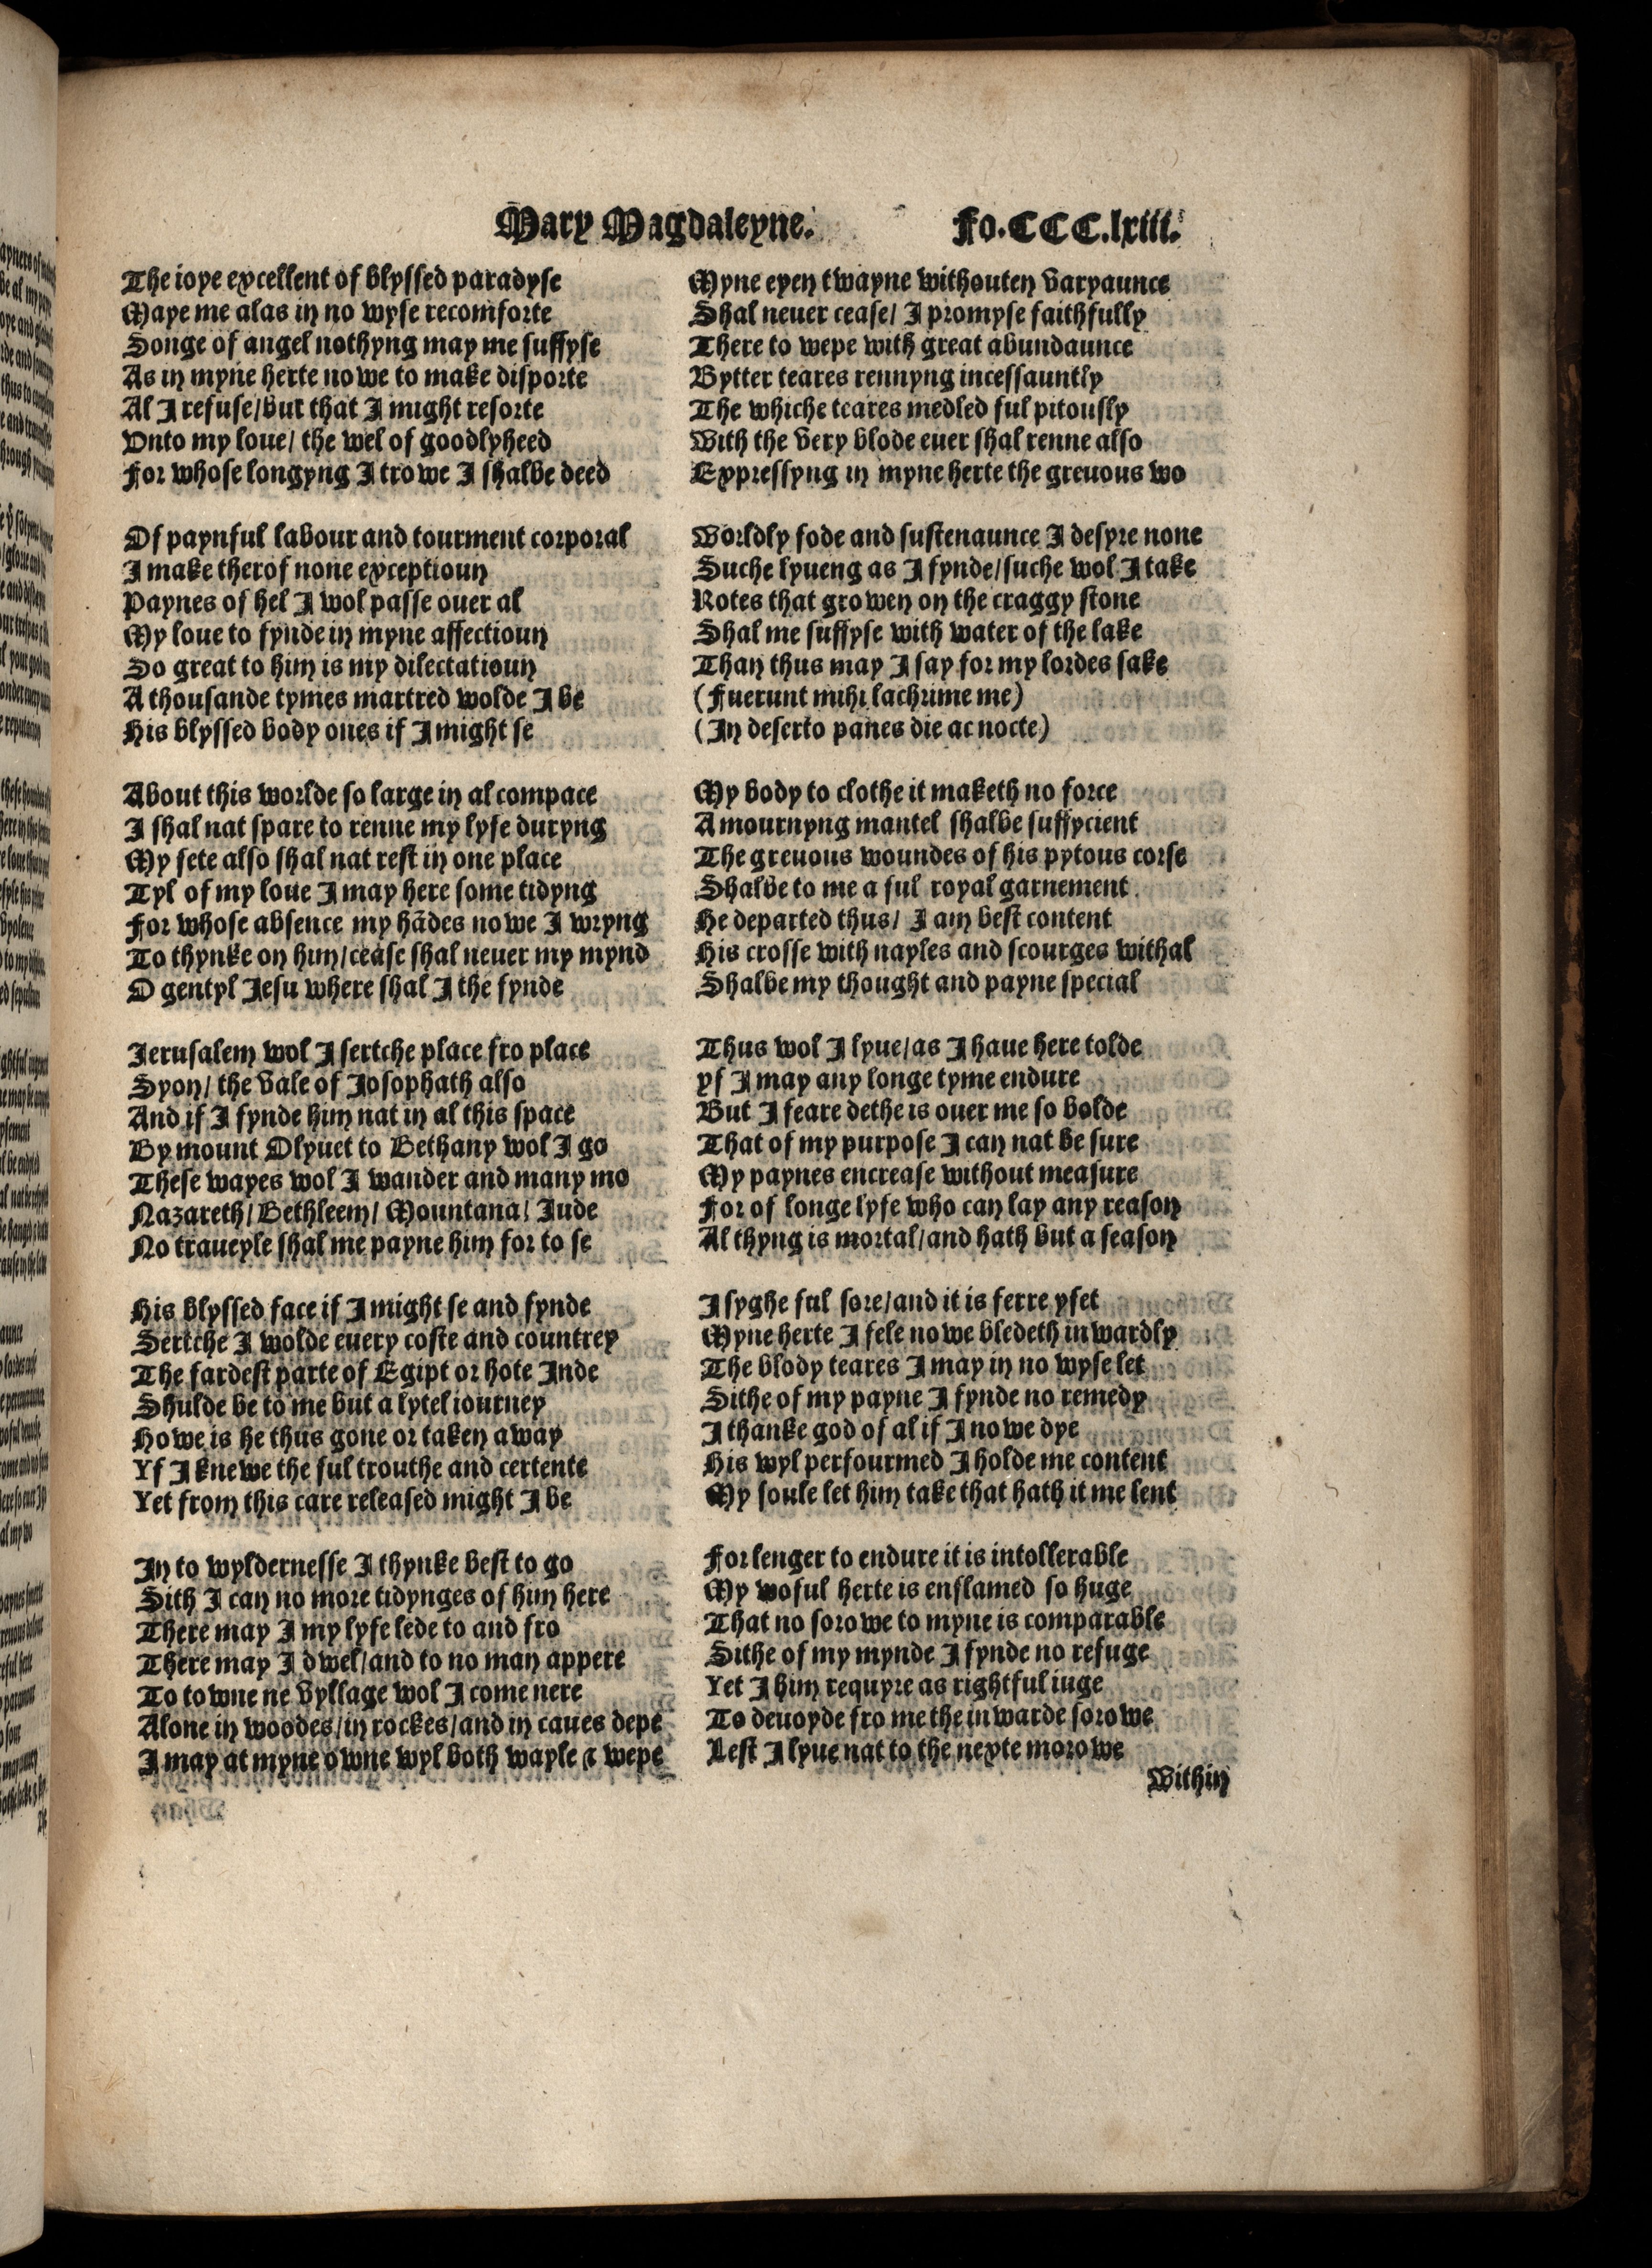 Mary Magdaleyne. Fo.CCC.lxiii.
The ioye excellent of blyssed paradyse
Maye me alas in no wyse recomforte
Songe of angel nothyng may me suffyse
As in myne herte nowe to make disporte
Al I refuse/but that I might resorte
Vnto my loue/ the wel of goodlyheed
For whose longyng I trowe I shalbe deed
Of paynful labour and tourment corporal
I make therof none exceptioun
Paynes of hel I wol passe ouer al
My loue to fynde in myne affectioun
So great to him is my dilectatioun
A thousande tymes martred wolde I be
His blyssed body ones if I might se
About this worlde so large in al compace
I shal nat spare to renne my lyfe duryng
My fete also shal nat rest in one place
Tyl of my loue I may here some tidyng
For whose absence my hãdes nowe I wryng
To thynke on him/cease shal neuer my mynd
O gentyl Jesu where shal I the fynde
Jerusalem wol I sertche place fro place
Syon/ the vale of Josophath also
And if I fynde him nat in al this space
By mount Olyuet to Bethany wol I go
These wayes wol I wander and many mo
Nazareth/Bethleem/ Mountana/ Jude
No traueyle shal me payne him for to se
His blyssed face if I might se and fynde
Sertche I wolde euery coste and countrey
The fardest parte of Egipt or hote Inde
Shulde be to me but a lytel iourney
Howe is he thus gone or taken away
Yf I knewe the ful trouthe and certente
Yet from this care released might I be
In to wyldernesse I thynke best to go
Sith I can no more tidynges of him here
There may I my lyfe lede to and fro
There may I dwel/and to no man appere
To towne ne vyllage wol I come nere
Alone in woodes/in rockes/and in caues depe
I may at myne owne wyl both wayle & wepe
Myne eyen twayne withouten varyaunce
Shal neuer cease/ I promyse faithfully
There to wepe with great abundaunce
Bytter teares rennyng incessauntly
The whiche teares medled ful pitously
With the very blode euer shal renne also
Expressyng in myne herte the greuous wo
Worldly fode and sustenaunce I desyre none
Suche lyueng as I fynde/suche wol I take
Rotes that growen on the craggy stone
Shal me suffyse with water of the lake
Than thus may I say for my lordes sake
(Fuerunt mihi lachrime me)
(In deserto panes die ac nocte)
My body to clothe it maketh no force
A mournyng mantel shalbe suffycient
The greuous woundes of his pytous corse
Shalbe to me a ful royal garnement
He departed thus/ I am best content
His crosse with nayles and scourges withal
Shalbe my thought and payne special
Thus wol I lyue/as I haue here tolde
yf I may any longe tyme endure
But I feare dethe is ouer me so bolde
That of my purpose I can nat be sure
My paynes encrease without measure
For of longe lyfe who can lay any reason
Al thyng is mortal/and hath but a season
I syghe ful sore/and it is ferre yfet
Myne herte I fele nowe bledeth inwardly
The blody teares I may in no wyse let
Sithe of my payne I fynde no remedy
I thanke god of al if I nowe dye
His wyl perfourmed I holde me content
My soule let him take that hath it me lent
For lenger to endure it is intollerable
My woful herte is enflamed so huge
That no sorowe to myne is comparable
Sithe of my mynde I fynde no refuge
Yet I him requyre as rightful iuge
To deuoyde fro me the inwarde sorowe
Lest I lyue nat to the nexte morowe
Within